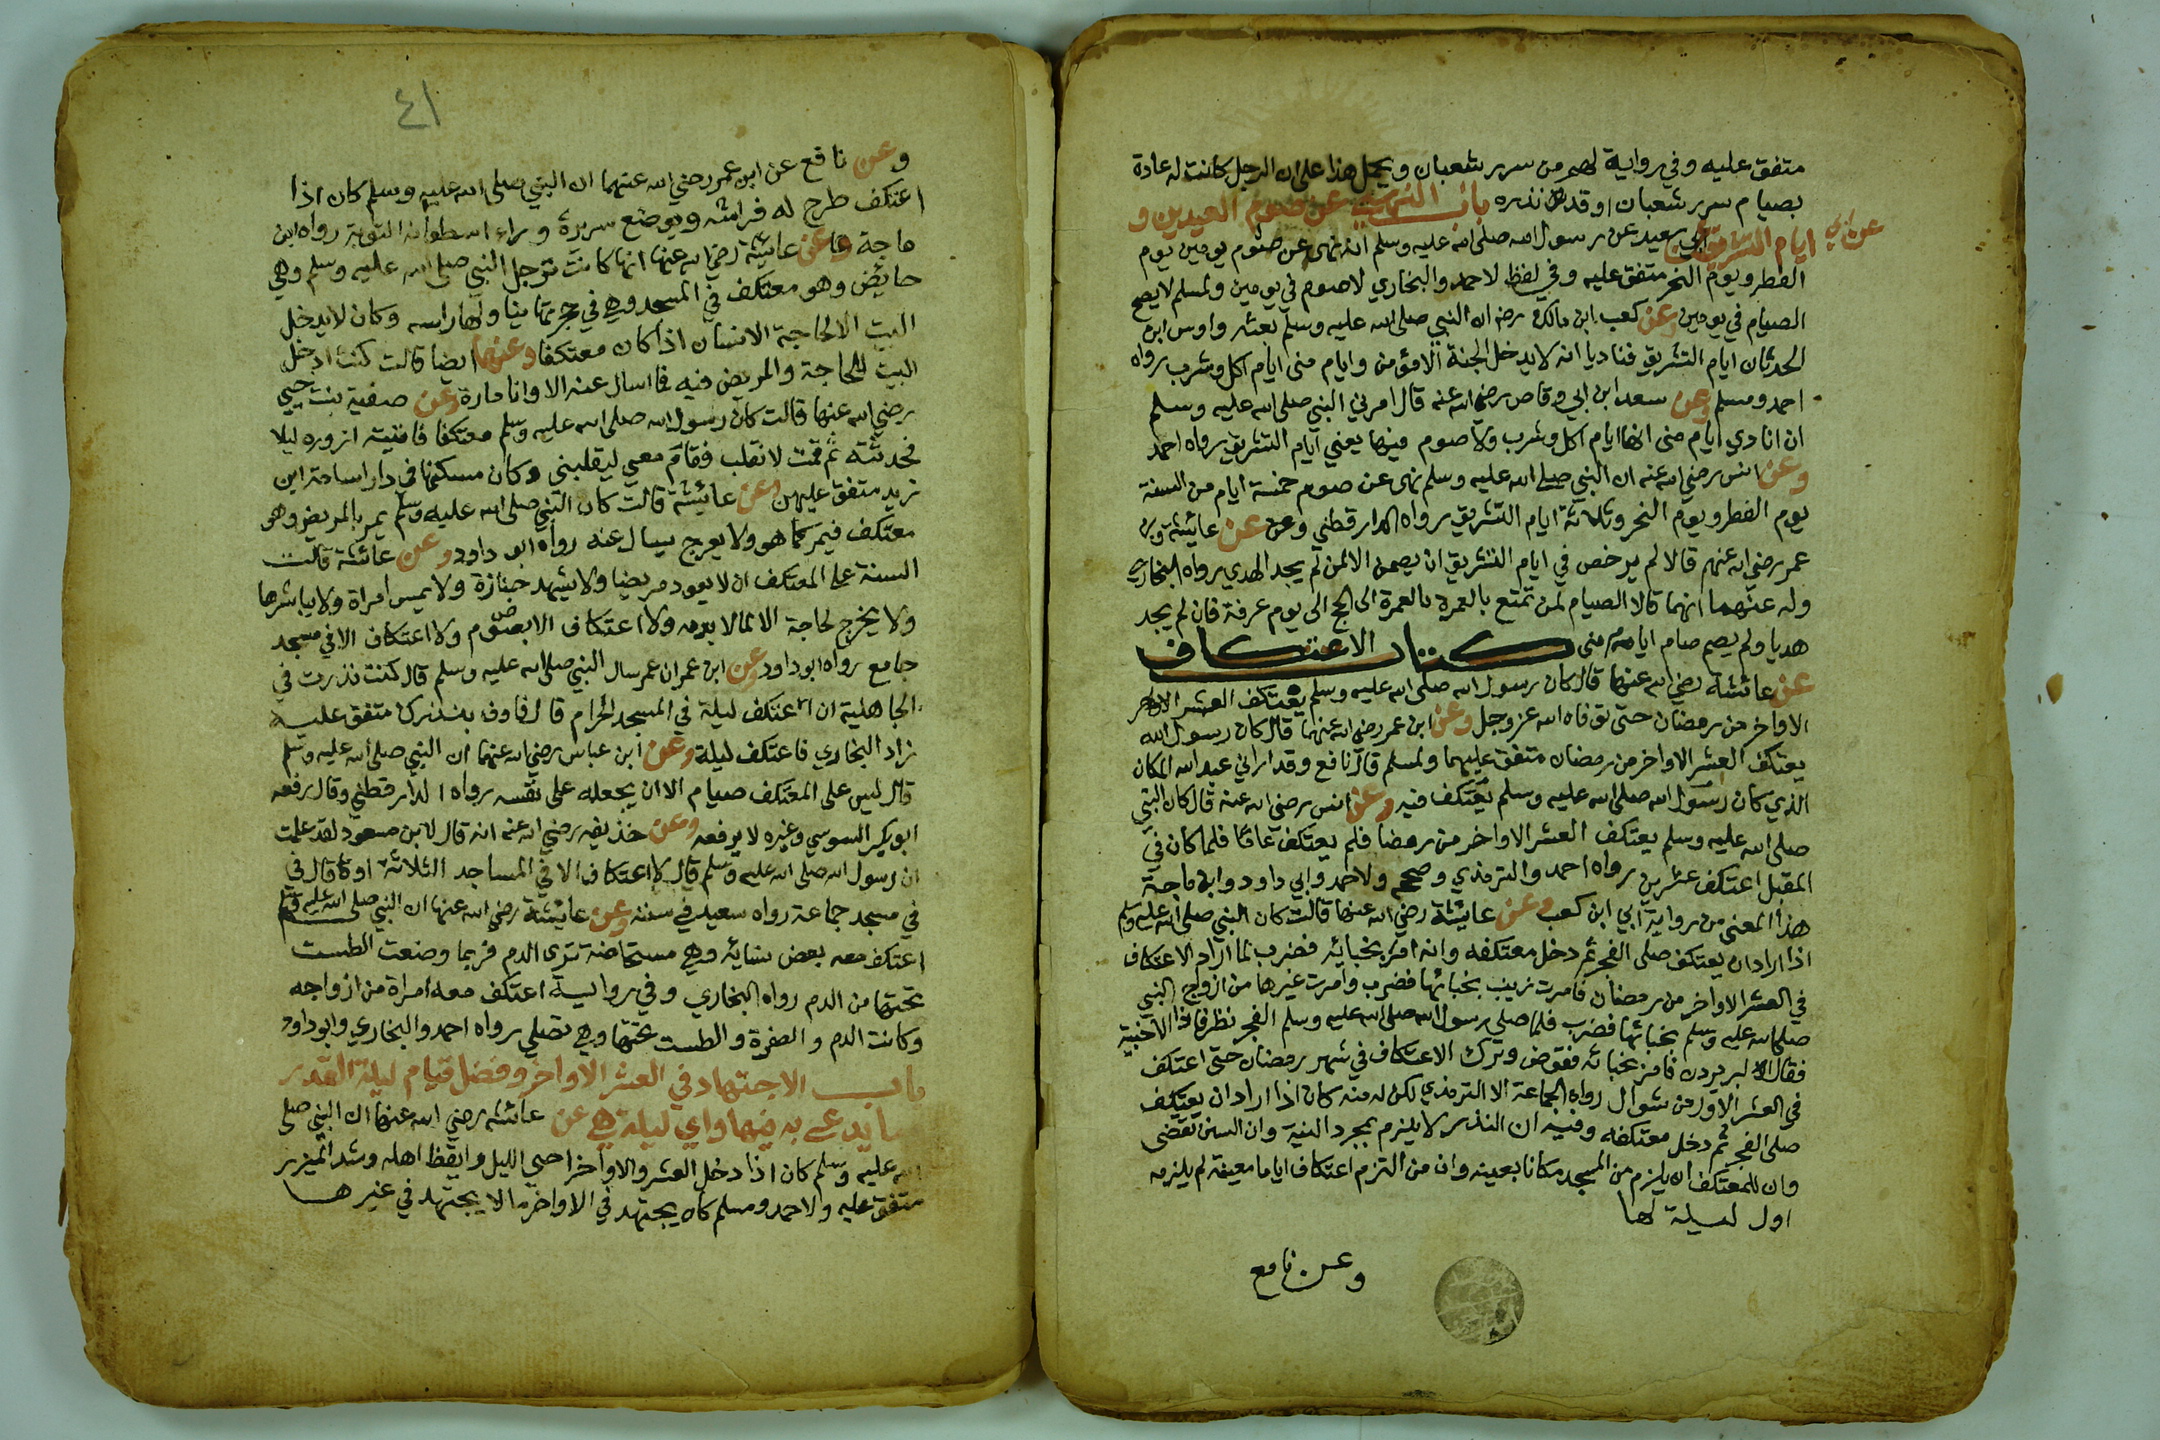 متفق عليه وفي رواية لهم من سرر شعبان ويحمل هذا على ان الرجل كانت له عادة
بصيام سرر شعبان او قد نذره باب النهي عن صوم العيدين و
ايام التشريق عن ابي سعيد عن رسول الله صلى الله عليه وسلم انه نهى عن صوم يومين يوم
الفطر ويوم النحر متفق عليه وفي لفظ لاحمد والبخاري لا صوم في يومين ولمسلم لا يصح
الصيام في يومين وعن كعب ابن مالك رضي ان النبي صلى الله عليه وسلم بعثه واوس ابن
الحدثان ايام التشريق فناديا انه لا يدخل الجنة الا مؤمن وايام منى ايام اكل وشرب رواه
احمد ومسلم وعن سعد ابن ابي وقاص رضي الله عنه قال امرني النبي صلى الله عليه وسلم
ان انادي ايام منى انها ايام اكل وشرب ولا صوم فيها يعني ايام التشريق رواه احمد
وعن انس رضي الله عنه ان النبي صلى الله عليه وسلم نهى عن صوم خمسة ايام من السنة
يوم الفطر ويوم النحر وثلاثة ايام التشريق رواه الدارقطني وعن عن عائشة وابن
عمر رضي الله عنهم قالا لم يرخص في ايام التشريق ان يصمن الا لمن لم يجد الهدي رواه البخاري
وله عنهما انهما قالا الصيام لمن تمتع بالعمرة بالعمرة الى الحج الى يوم عرفة فان لم يجد
هديا ولم يصم صام ايام منى كتاب الاعتكاف
عن عائشة رضي الله عنها قال كان رسول الله صلى الله عليه وسلم يعتكف العشر الاواخر
الاواخر من رمضان حتى توفاه الله عز وجل وعن ابن عمر رضي الله عنهما قال كان رسول الله
يعتكف العشر الاواخر من رمضان متفق عليهما ولمسلم قال نافع وقد اراني عبد الله المكان
الذي كان رسول الله صلى الله عليه وسلم يعتكف فيه وعن انس رضي الله عنه قال كان النبي
صلى الله عليه وسلم يعتكف العشر الاواخر من رمضا فلم يعتكف عاما فلما كان في
المقبل اعتكف عشرين رواه احمد والترمذي وصححه ولاحمد وابي داود وابن ماجة
هذا المعنى من رواية ابي ابن كعب وعن عايشة رضي الله عنها قالت كان النبي صلى الله عليه وسلم
اذا اراد ان يعتكف صلى الفجر ثم دخل معتكفه وانه امر بخبائه فضرب لما اراد الاعتكاف
في العشر الاواخر من رمضان فامرت زينب بخبائها فضرب وامرت غيرها من ازواج النبي
صلى الله عليه وسلم بخبائها فضرب فلما صلى رسول الله صلى الله عليه وسلم الفجر نظر فاذا الاخبية
فقال البر يردن فامر بخبائه فقوض وترك الاعتكاف في شهر رمضان حتى اعتكف
في العشر الاول من شوال رواه الجماعة الا الترمذي لكن له منه كان اذا اراد ان يعتكف
صلى الفجر ثم دخل معتكفه وفيه ان النذر لا يلزم بمجرد النية وان السنن تقضى
وان للمعتكف ان يلزم من المسجد مكانا بعينه وان من التزم اعتكاف اياما معينة لم يلزمه
اول ليلة لها
وعن نافع
٤١
وعن نافع عن ابن عمر رضي الله عنهما ان النبي صلى الله عليه وسلم كان اذا
اعتكف طرح له فراشه ويوضع سريره وراء اسطوانة التوبة رواه ابن
ماجة وعن عايشة رضي الله عنها انها كانت ترجل النبي صلى الله عليه وسلم وهي
حايض وهو معتكف في المسجد وهي في حجرتها يناولها راسه وكان لا يدخل
البيت الا لحاجة الانسان اذا كان معتكفا وعنها ايضا قالت كنت ادخل
البيت للحاجة والمريض فيه فما اسال عنه الا وانا مارة وعن صفية بنت حيي
رضي الله عنها قالت كان رسول الله صلى الله عليه وسلم معتكفا فاتيته ازوره ليلا
فحدثته ثم قمت لانقلب فقام معي ليقلبني وكان مسكنها في دار اسامة ابن
زيد متفق عليهن وعن عائشة قالت كان النبي صلى الله عليه وسلم يمر بالمريض وهو
معتكف فيمر كما هو ولا يعرج يسال عنه رواه ابو داود وعن عائشة قالت
السنة على المعتكف ان لا يعود مريضا ولا يشهد جنازة ولا يمس امراة ولا يباشرها
ولا يخرج لحاجة الا لما لا بد منه ولا اعتكاف الا بصوم ولا اعتكاف الا في مسجد
جامع رواه ابو داود وعن ابن عمر ان عمر سال النبي صلى الله عليه وسلم قال كنت نذرت في
الجاهلية ان اعتكف ليلة في المسجد الحرام قال فاوف بنذرك متفق عليه
زاد البخاري فاعتكف ليلة وعن ابن عباس رضي الله عنهما ان النبي صلى الله عليه وسلم
قال ليس على المعتكف صيام الا ان يجعله على نفسه رواه الدارقطني وقال رفعه
ابو بكر السوسي وغيره لا يرفعه وعن حذيفه رضي الله عنه انه قال لابن مسعود لقد علمت
ان رسول الله صلى الله عليه وسلم قال لا اعتكاف الا في المساجد الثلاثة او كا قال في
في مسجد جماعة رواه سعيد في سننه وعن عايشة رضي الله عنها ان النبي صلى الله عليه وسلم
اعتكف معه بعض نسائه وهي مستحاضة ترى الدم فربما وضعت الطست
تحتها من الدم رواه البخاري وفي رواية اعتكف معه امراة من ازواجه
وكانت الدم والصفرة والطست تحتها وهي تصلي رواه احمد والبخاري وابو داود
باب الاجتهاد في العشر الاواخر وفضل قيام ليلة القدر
ما يدعى به فيها واي ليلة هي عن عائشة رضي الله عنها ان النبي صلى
الله عليه وسلم كان اذا دخل العشر والاواخر احيى الليل وايقظ اهله وشد الميزر
متفق عليه ولاحمد ومسلم كان يجتهد في الاواخر ما لا يجتهد في غيرها